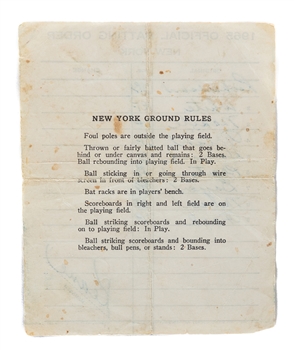 NEW YORK GROUND RULES
Foul poles are outside the playing field.
Thrown or fairly batted ball that goes be-
hind or under canvas and remains: 2 Bases.
Ball rebounding into playing field. In Play.
Ball sticking in or going through wire
screen in front of bleachers: 2 Bases.
Bat racks are in players' bench.
Scoreboards in right and left field are on
the playing field.
Ball striking scoreboards and rebounding
on to playing field: In Play.
Ball striking scoreboards and bounding into
bleachers, bull pens, or stands: 2 Bases.